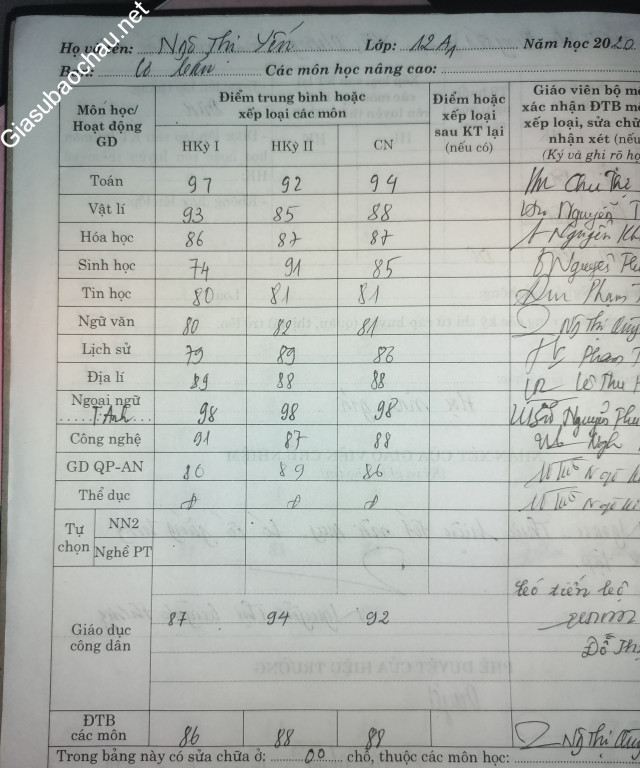 Giasubaochau.net
Họ và tên: Ngô Thị Yến Lớp: 12A1 Năm học 2020
Ban: Cơ bản Các môn học nâng cao:
Môn học/ Hoạt động GD
Điểm trung bình hoặc xếp loại các môn
HKỳ I HKỳ II CN
Điểm hoặc xếp loại sau KT lại (nếu có)
Giáo viên bộ mô
xác nhận ĐTB mô
xếp loại, sửa chữ
nhận xét (nếu
(Ký và ghi rõ họ
Toán 97 92 94 Chu Thị
Vật lí 93 85 88 Nguyễn T
Hóa học 86 87 87 Nguyễn Kh
Sinh học 74 91 85 Nguyễn Th
Tin học 80 81 81 Phạm T
Ngữ văn 80 82 81 Ng Thị Quỳ
Lịch sử 79 89 86 Phạm T
Địa lí 89 88 88 Lê Thu H
Ngoại ngữ
T.Anh 98 98 98 Nguyễn Thu
Công nghệ 91 87 88
GD QP-AN 86 89 86 Ngô
Thể dục đ đ đ Ngô
Tự chọn
NN2
Nghề PT
Giáo dục công dân 87 94 92
có tiến bộ
Đỗ Th
ĐTB các môn 86 88 88 Ng Thị Quỳ
Trong bảng này có sửa chữa ở: 00 chỗ, thuộc các môn học: